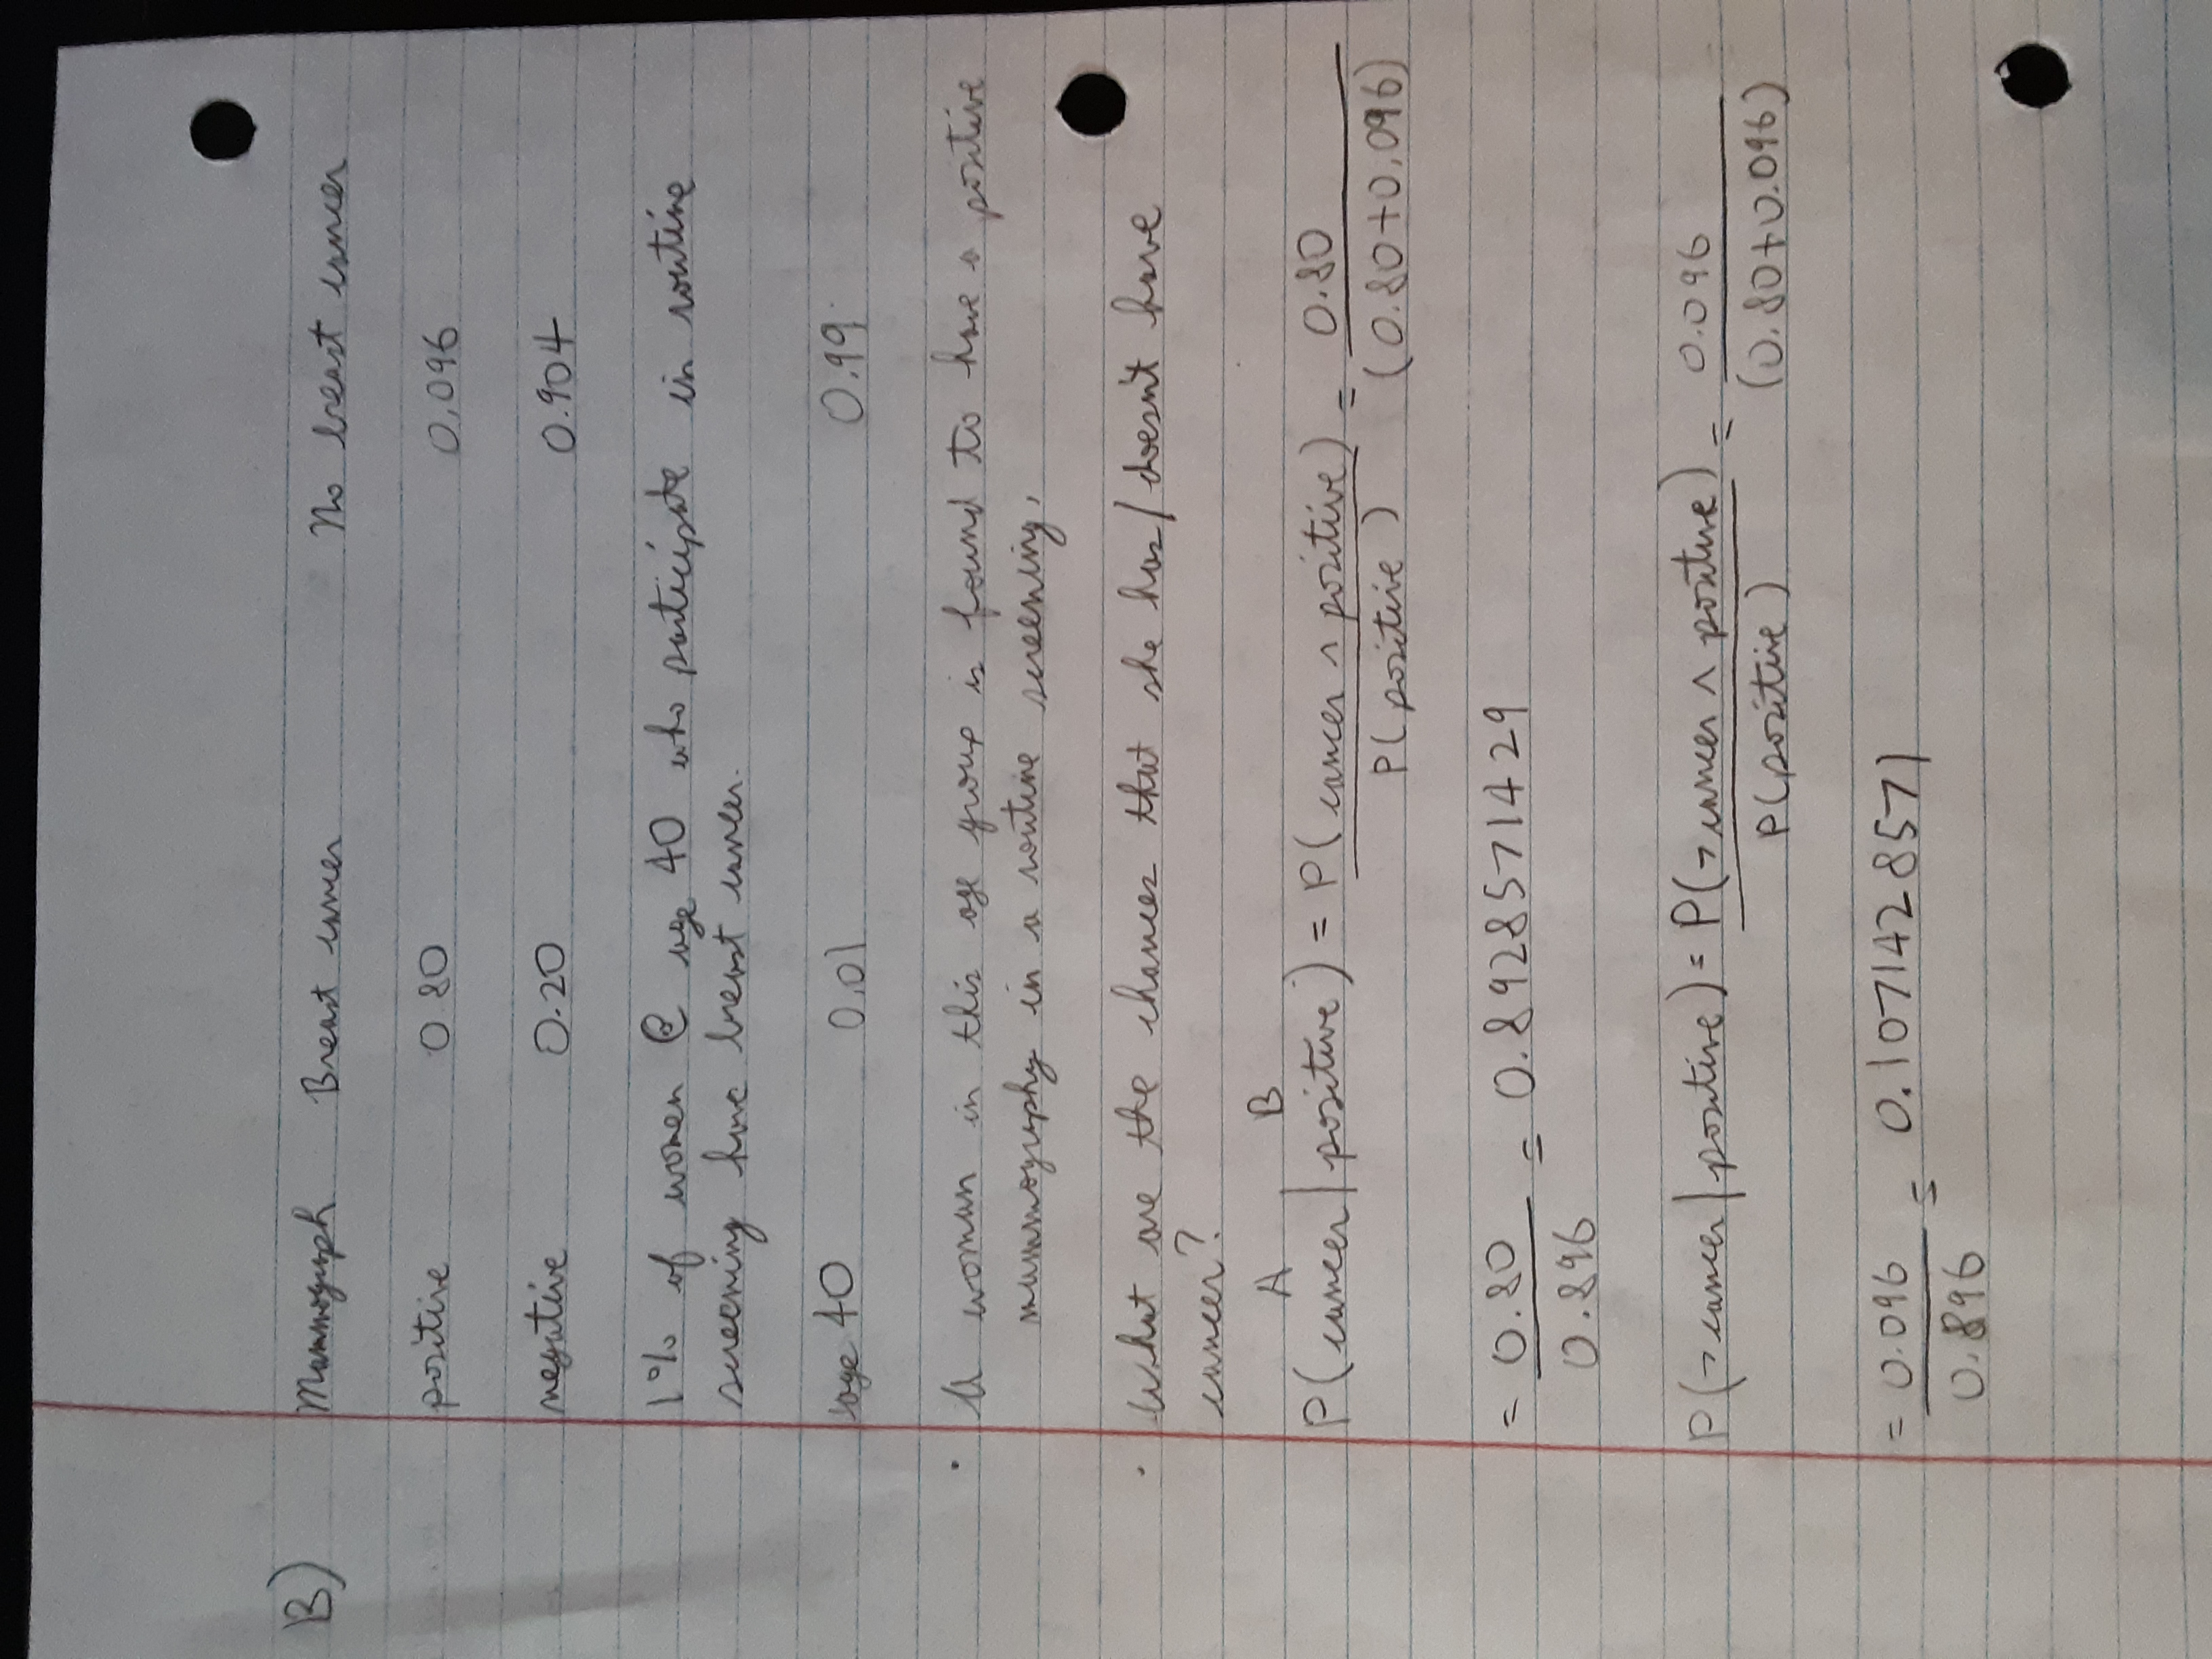 B) Mammograph Breast cancer No breast cancer
positive 0.80 0.096
negative 0.20 0.904
1% of women @ age 40 who participate in routine
screening have breast cancer.
age 40 0.01 0.99
· A woman in this age group is found to have a positive
mammography in a routine screening.
· What are the chances that she has/doesn't have
cancer?
A B
P(cancer | positive) = P(cancer ∧ positive) / P(positive) = 0.80 / (0.80+0.096)
= 0.80 / 0.896 = 0.8928571429
P(¬cancer | positive) = P(¬cancer ∧ positive) / P(positive) = 0.096 / (0.80+0.096)
= 0.096 / 0.896 = 0.1071428571